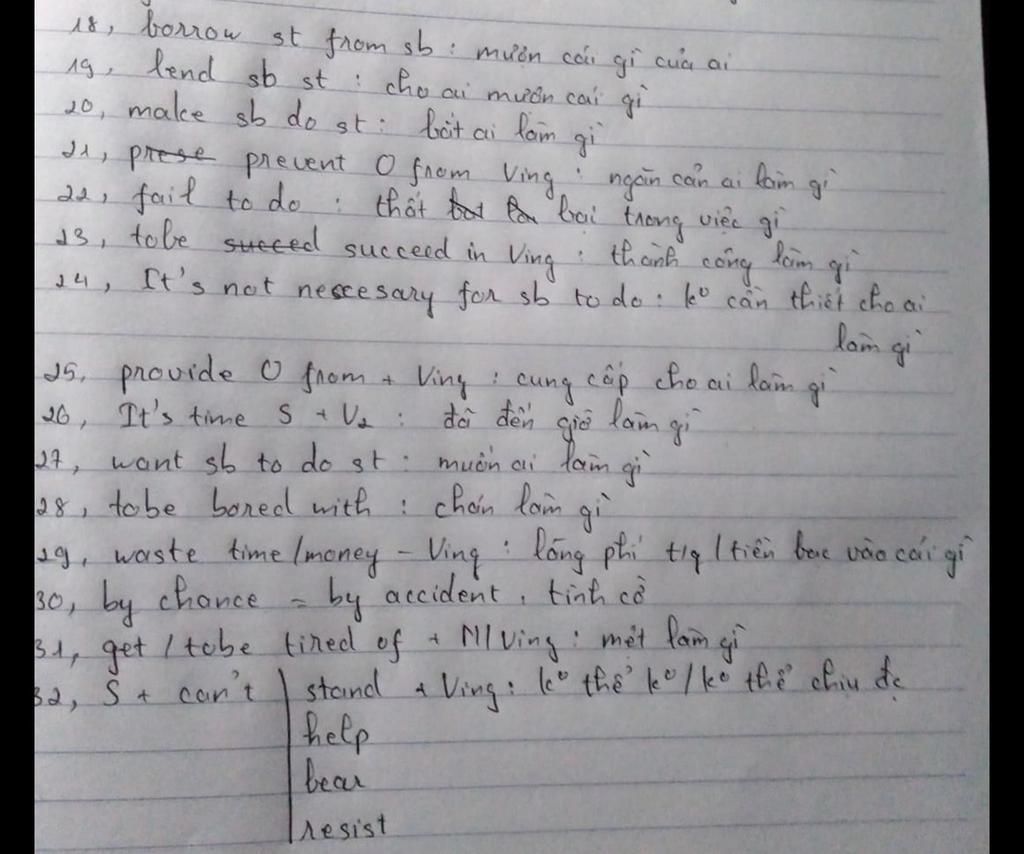 18, borrow st from sb : mượn cái gì của ai
19, lend sb st : cho ai mượn cái gì
20, make sb do st : bắt ai làm gì
21, prese prevent O from Ving : ngăn cản ai làm gì
22, fail to do : thất bại trong việc gì
23, tobe succed succeed in Ving : thành công làm gì
24, It's not nescesary for sb to do : ko cần thiết cho ai
làm gì
25, provide O from + Ving : cung cấp cho ai làm gì
26, It's time S + V2 : đã đến giờ làm gì
27, want sb to do st : muốn ai làm gì
28, tobe bored with : chán làm gì
29, waste time/money - Ving : lãng phí t/g / tiền bạc vào cái gì
30, by chance = by accident , tình cờ
31, get / tobe tired of + N/Ving : mệt làm gì
32, S + can't | stand + Ving : ko thể ko/ko thể chịu đc
help
bear
resist